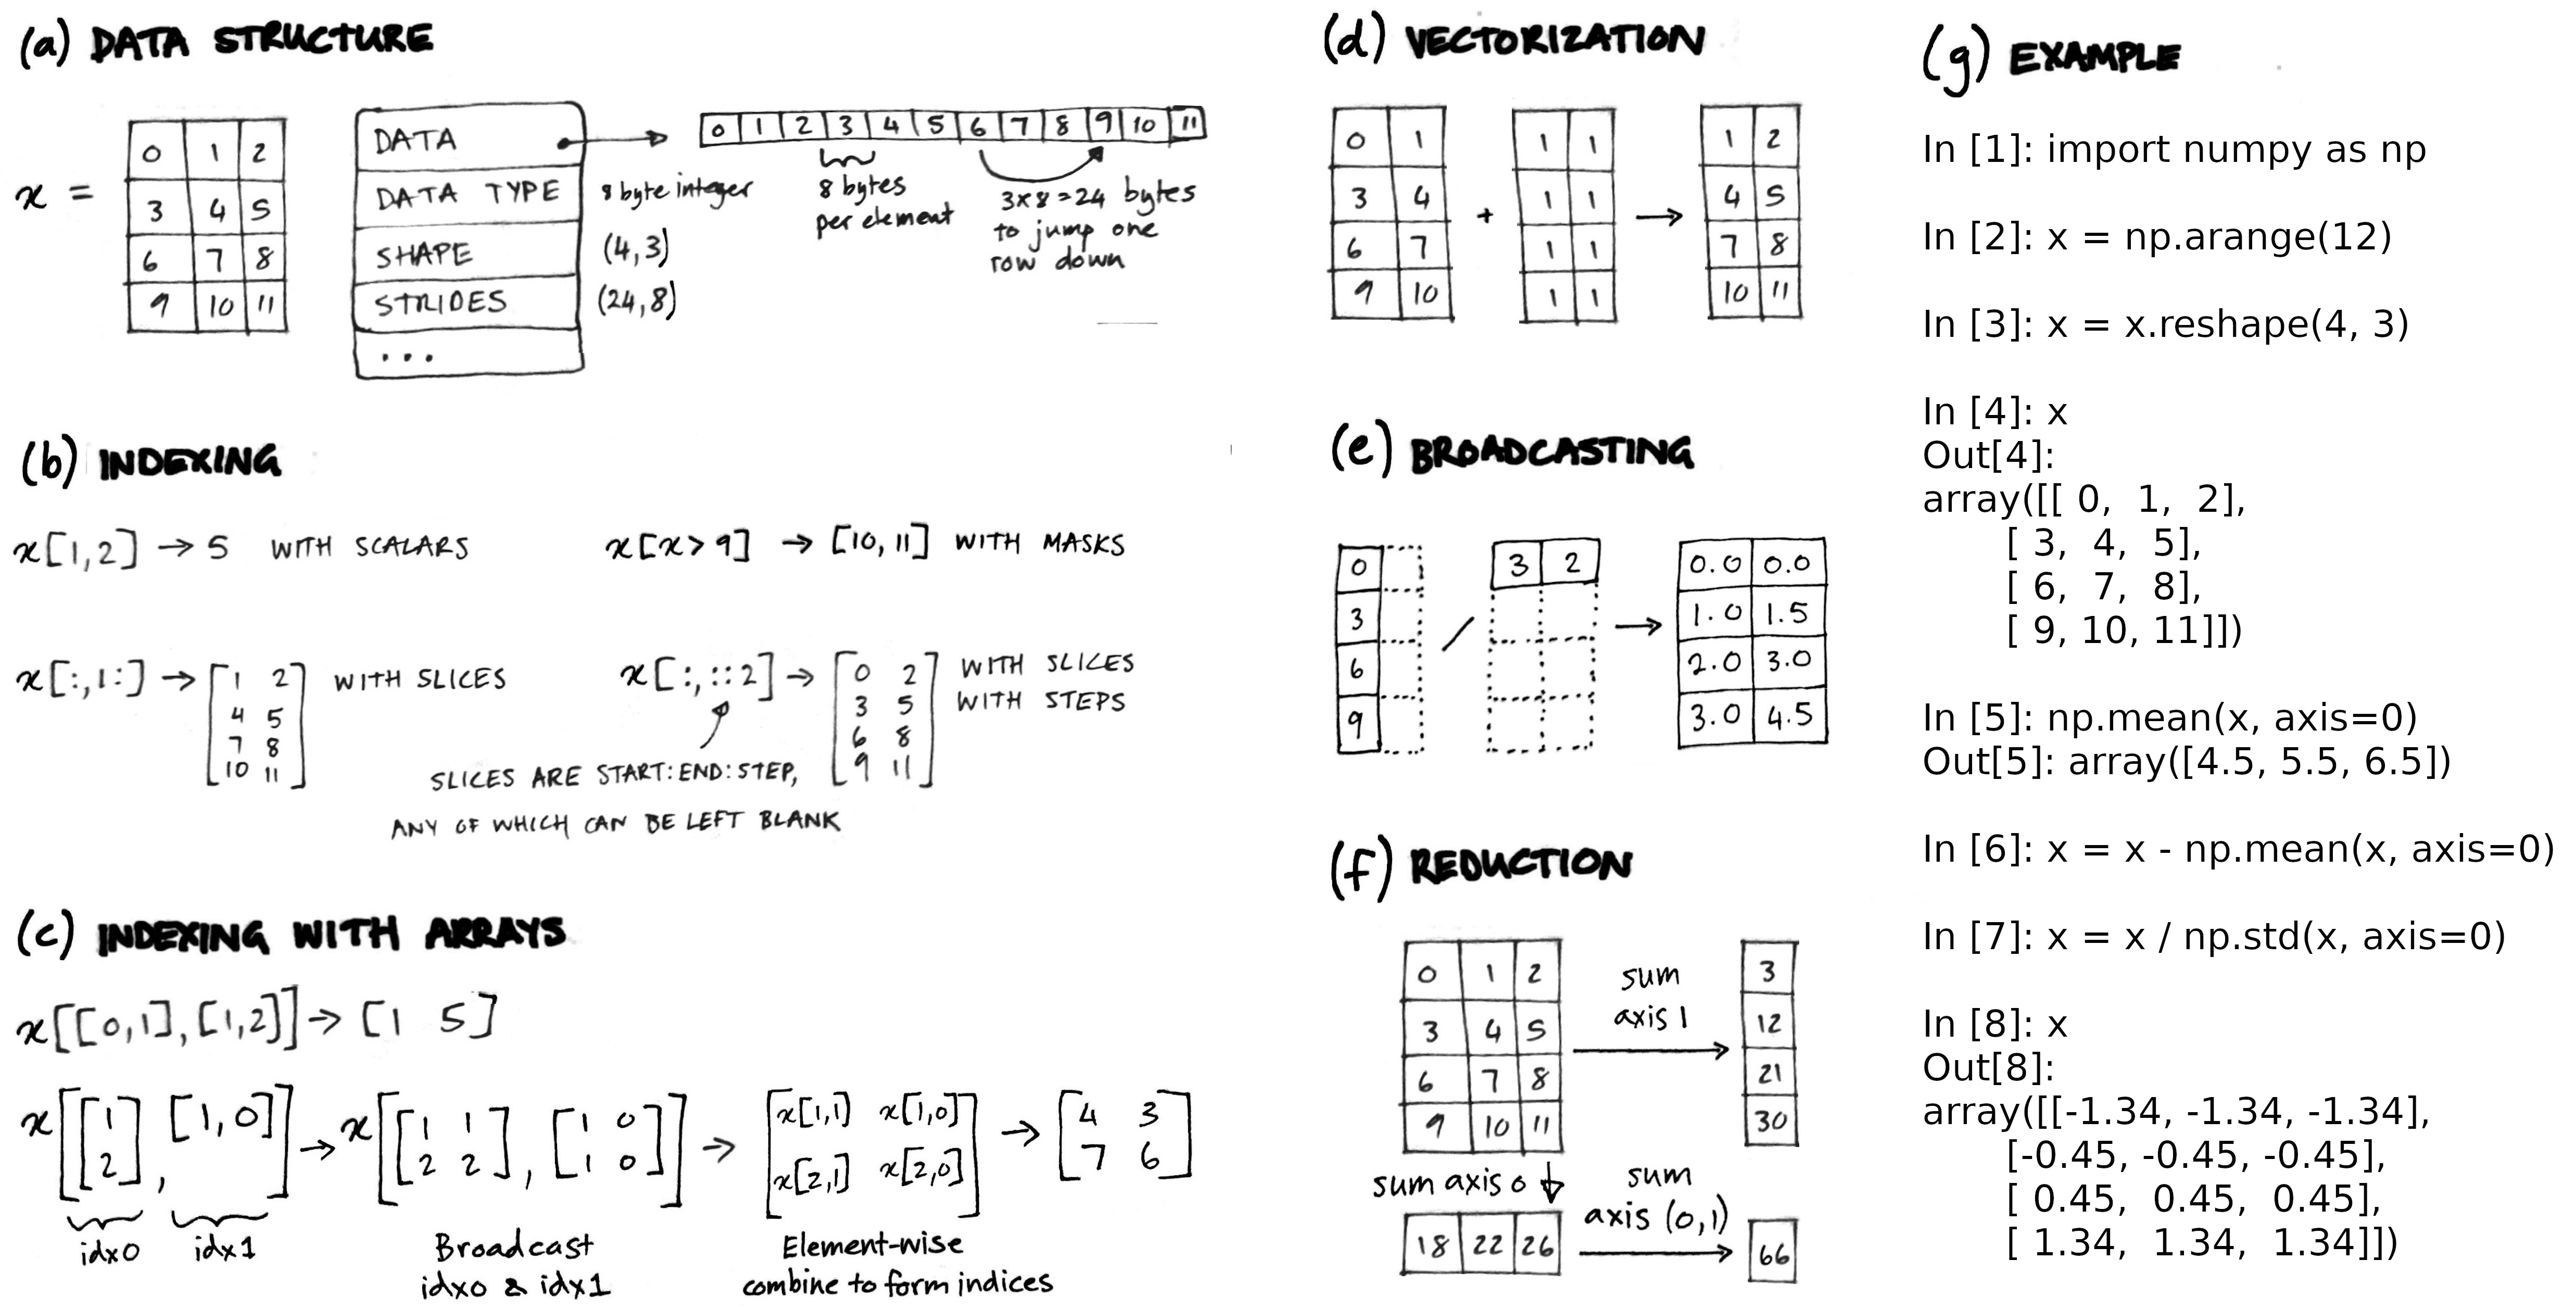 (a) DATA STRUCTURE
x =
0 1 2
3 4 5
6 7 8
9 10 11
DATA
DATA TYPE
SHAPE
STRIDES
...
8 byte integer
(4,3)
(24,8)
0 1 2 3 4 5 6 7 8 9 10 11
8 bytes
per element
3x8=24 bytes
to jump one
row down
(b) INDEXING
x[1,2] → 5 WITH SCALARS
x[x>9] → [10,11] WITH MASKS
x[:,1:] → WITH SLICES
1 2
4 5
7 8
10 11
x[:,::2] →
0 2
3 5
6 8
9 11
WITH SLICES
WITH STEPS
SLICES ARE START:END:STEP,
ANY OF WHICH CAN BE LEFT BLANK
(c) INDEXING WITH ARRAYS
x[[0,1],[1,2]] → [1 5]
x[[1 2], [1,0]] → x[[1 1 2 2], [1 0 1 0]] →
idx0 idx1
Broadcast
idx0 & idx1
x[1,1] x[1,0]
x[2,1] x[2,0]
→
4 3
7 6
Element-wise
combine to form indices
(d) VECTORIZATION
0 1 + 1 1 → 1 2
3 4 1 1 4 5
6 7 1 1 7 8
9 10 1 1 10 11
(e) BROADCASTING
0 / 3 2 → 0.0 0.0
3 1.0 1.5
6 2.0 3.0
9 3.0 4.5
(f) REDUCTION
0 1 2
3 4 5
6 7 8
9 10 11
sum
axis 1
3
12
21
30
sum axis 0
18 22 26
sum
axis (0,1)
66
(g) EXAMPLE
In [1]: import numpy as np
In [2]: x = np.arange(12)
In [3]: x = x.reshape(4, 3)
In [4]: x
Out[4]:
array([[ 0, 1, 2],
[ 3, 4, 5],
[ 6, 7, 8],
[ 9, 10, 11]])
In [5]: np.mean(x, axis=0)
Out[5]: array([4.5, 5.5, 6.5])
In [6]: x = x - np.mean(x, axis=0)
In [7]: x = x / np.std(x, axis=0)
In [8]: x
Out[8]:
array([[-1.34, -1.34, -1.34],
[-0.45, -0.45, -0.45],
[ 0.45, 0.45, 0.45],
[ 1.34, 1.34, 1.34]])